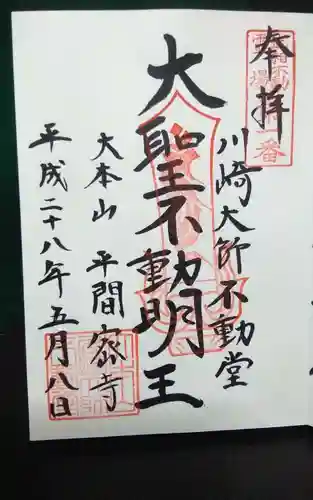 奉拝
川崎大師不動堂
大聖不動明王
大本山 平間密寺
平成二十八年五月八日